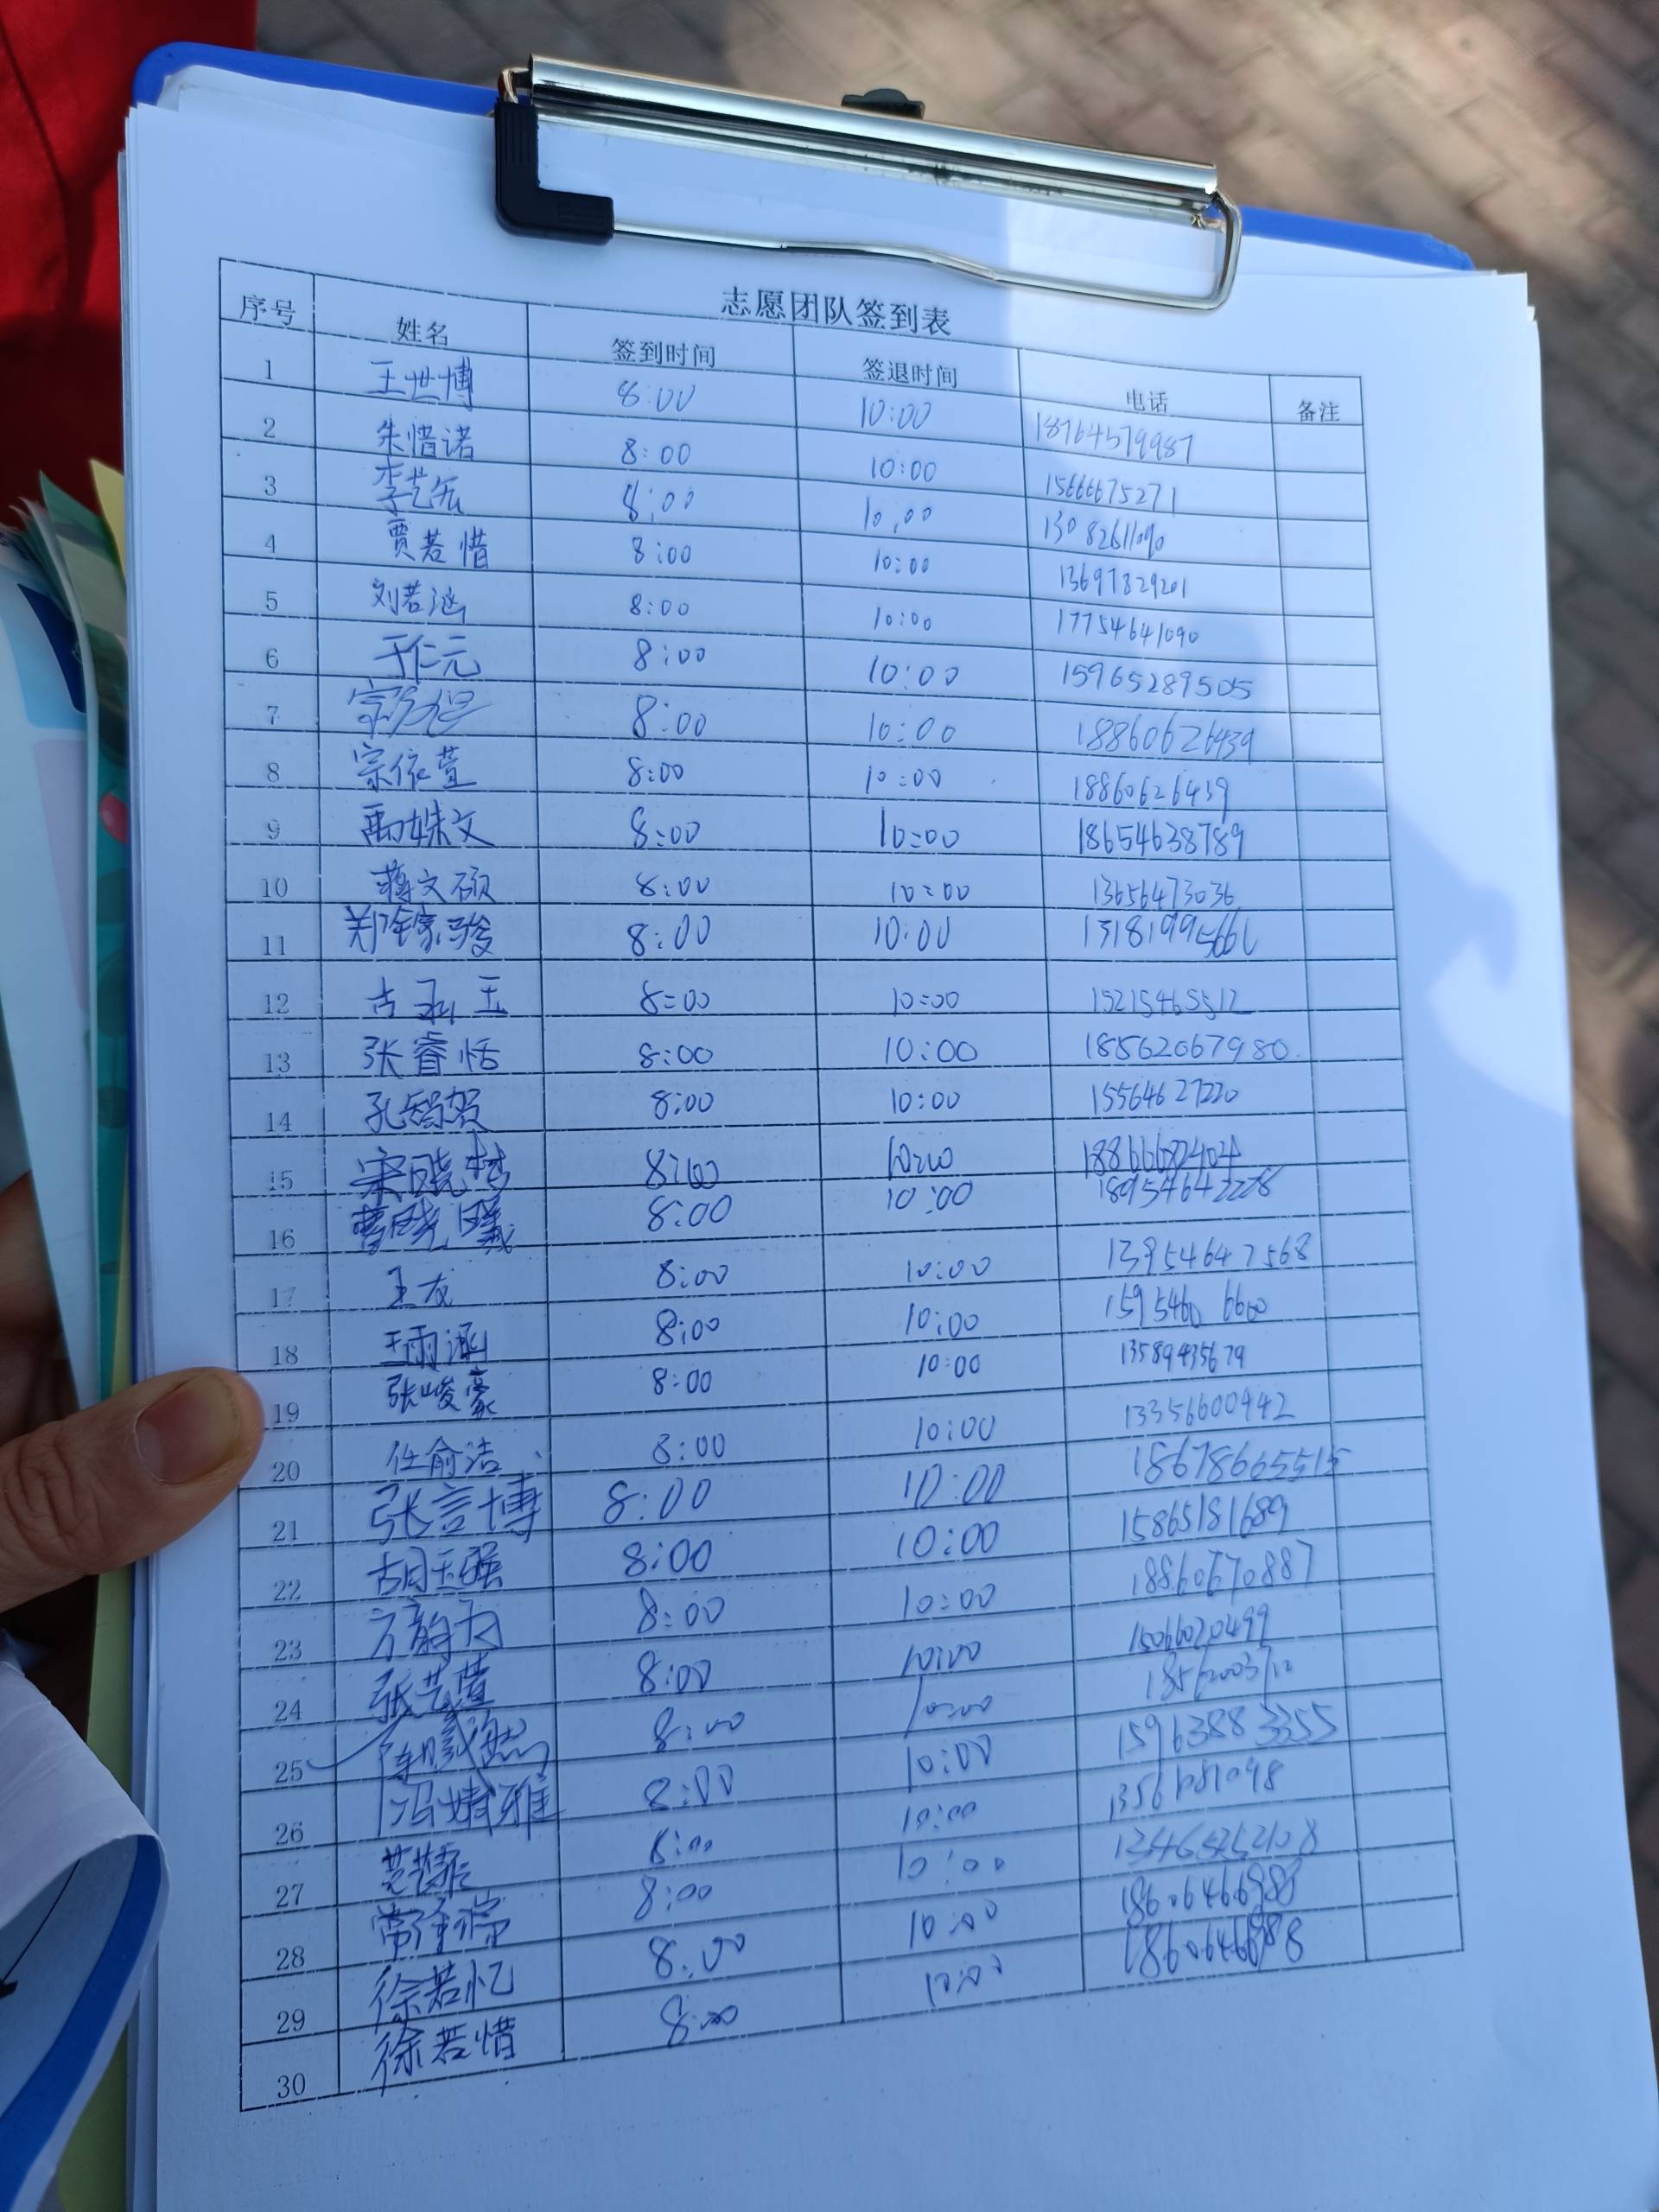 志愿团队签到表
序号 姓名 签到时间 签退时间 电话 备注
1 王世博 8:00 10:00 18764579987
2 朱惜诺 8:00 10:00 15666675271
3 李艺宏 8:00 10:00 13082611090
4 贾若惜 8:00 10:00 13697829201
5 刘若涵 8:00 10:00 17754641090
6 于仁元 8:00 10:00 15965289505
7 8:00 10:00 18860626439
8 宗依萱 8:00 10:00 18860626439
9 禹姝文 8:00 10:00 18654638789
10 蒋文硕 8:00 10:00 13656473036
11 郑徐家骏 8:00 10:00
12 8:00 10:00 15215465512
13 张睿恬 8:00 10:00 18562067980
14 孔智贺 8:00 10:00 15564627220
15 宋晓梦 8:00 10:00
16 曹晓曦 8:00 10:00 18954642228
17 王友 8:00 10:00 13954647568
18 王雨涵 8:00 10:00 15954606660
19 张峻豪 8:00 10:00 13589435679
20 任俞洁 8:00 10:00 13356600442
21 张言博 8:00 10:00 18678665515
22 胡玉强 8:00 10:00 15865181689
23 8:00 10:00 18860670887
24 张艺萱 8:00 10:00 15066020499
25 8:00 10:00
26 冯婧雅 8:00 10:00 15963883355
27 8:00 10:00
28 8:00 10:00
29 徐若忆 8:00 10:00 18606466988
30 徐若惜 8:00 10:00 18606466988